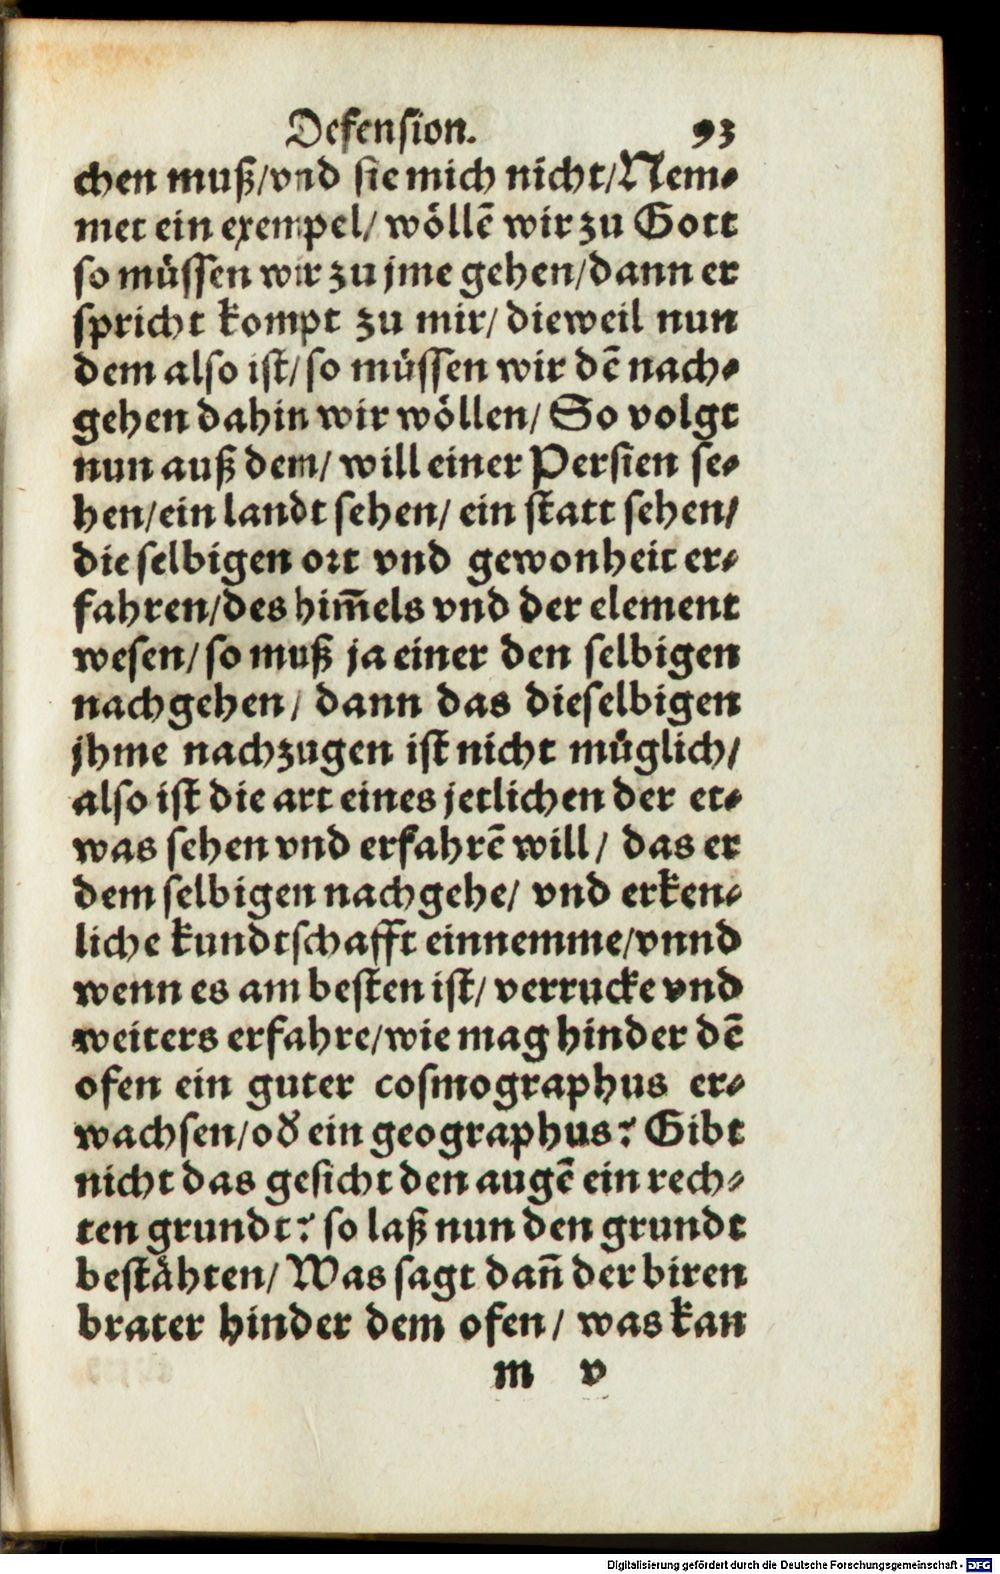 Defension. 93
chen muß/vnd sie mich nicht/Nem⸗
met ein exempel/ wöllē wir zu Gott
so müssen wir zu jme gehen/dann er
spricht kompt zu mir/ dieweil nun
dem also ist/ so müssen wir dē nach⸗
gehen dahin wir wöllen/ So volgt
nun auß dem/ will einer Persien se⸗
hen/ein landt sehen/ ein statt sehen/
die selbigen ort vnd gewonheit er⸗
fahren/des him̄els vnd der element
wesen/ so muß ja einer den selbigen
nachgehen/ dann das dieselbigen
jhme nachzugen ist nicht müglich/
also ist die art eines jetlichen der et⸗
was sehen vnd erfahrē will/ das er
dem selbigen nachgehe/ vnd erken⸗
liche kundtschafft einnemme/vnnd
wenn es am besten ist/ verrucke vnd
weiters erfahre/wie mag hinder dē
ofen ein guter cosmographus er⸗
wachsen/od̕ ein geographus? Gibt
nicht das gesicht den augē ein rech⸗
ten grundt? so laß nun den grundt
bestähten/ Was sagt dan̄ der biren
brater hinder dem ofen/ was kan
m v
Digitalisierung gefördert durch die Deutsche Forschungsgemeinschaft - DFG